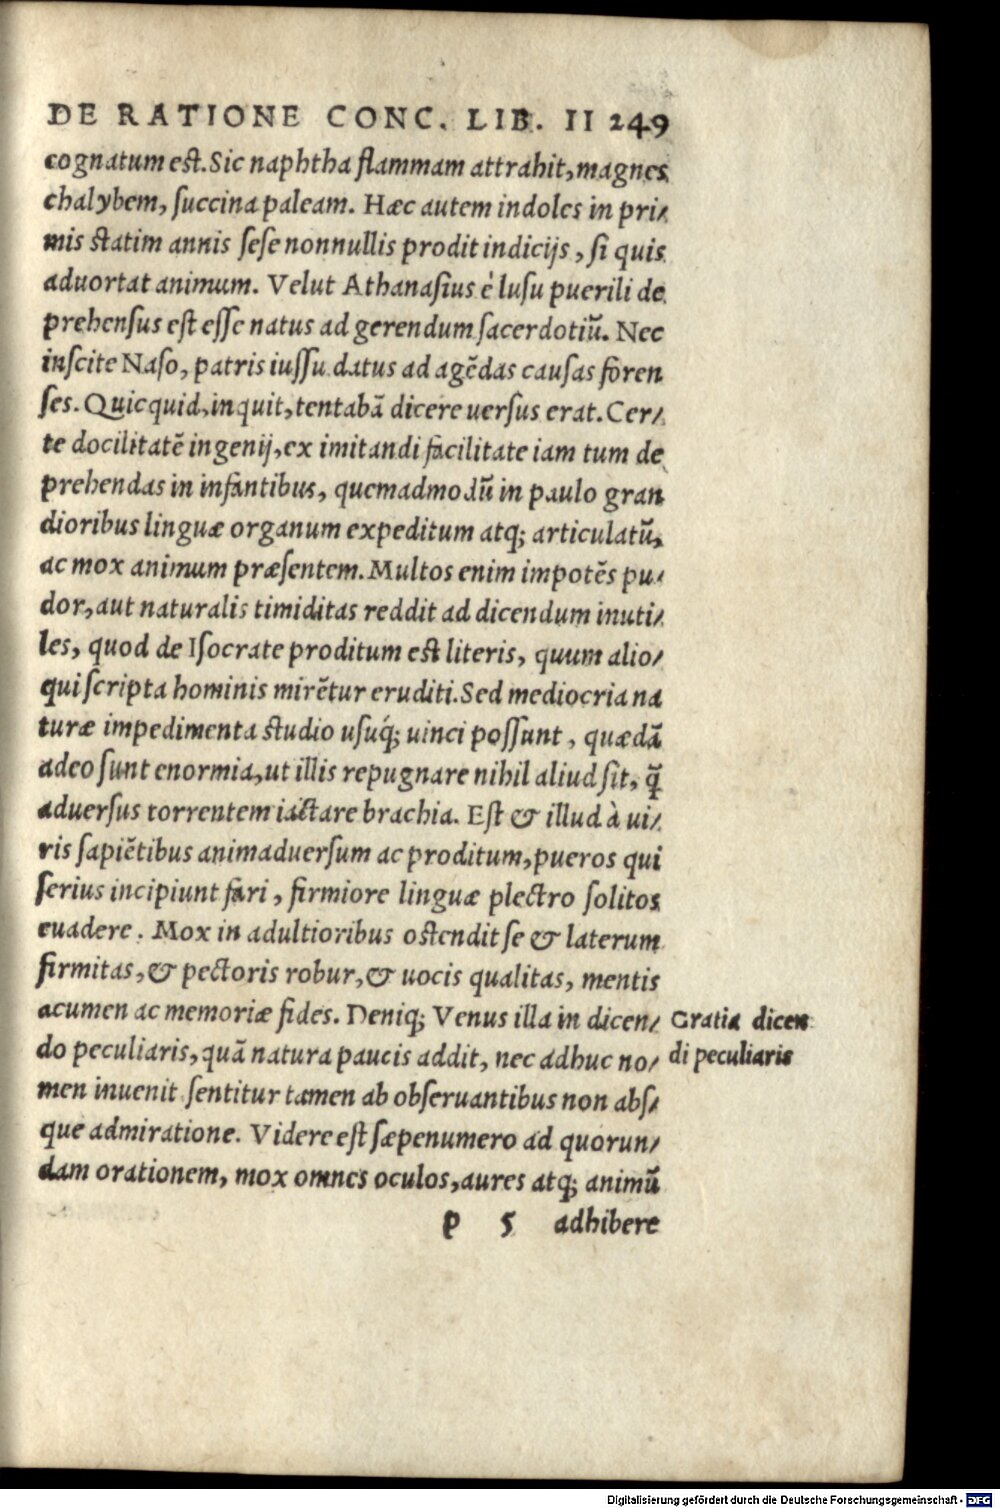 DE RATIONE CONC. LIB. II 249
cognatum est. Sic naphtha flammam attrahit, magnes
chalybem, succina paleam. Hæc autem indoles in pri⸗
mis statim annis sese nonnullis prodit indicijs, si quis
aduortat animum. Velut Athanasius è lusu puerili de
prehensus est esse natus ad gerendum sacerdotiũ. Nec
inscite Naso, patris iussu datus ad agẽdas causas foren
ses. Quicquid, inquit, tentabã dicere uersus erat. Cer⸗
te docilitatẽ ingenij, ex imitandi facilitate iam tum de
prehendas in infantibus, quemadmodũ in paulo gran
dioribus linguæ organum expeditum atq; articulatũ,
ac mox animum præsentem. Multos enim impotẽs pu⸗
dor, aut naturalis timiditas reddit ad dicendum inuti⸗
les, quod de Isocrate proditum est literis, quum alio⸗
qui scripta hominis mirẽtur eruditi. Sed mediocria na
turæ impedimenta studio usuq́; uinci possunt, quædã
adeo sunt enormia, ut illis repugnare nihil aliud sit, q̃
aduersus torrentem iactare brachia. Est & illud à ui⸗
ris sapiẽtibus animaduersum ac proditum, pueros qui
serius incipiunt fari, firmiore linguæ plectro solitos
euadere. Mox in adultioribus ostendit se & laterum
firmitas, & pectoris robur, & uocis qualitas, mentis
acumen ac memoriæ fides. Deniq; Venus illa in dicen⸗
do peculiaris, quã natura paucis addit, nec adhuc no⸗
men inuenit sentitur tamen ab obseruantibus non abs⸗
que admiratione. Videre est sæpenumero ad quorun⸗
dam orationem, mox omnes oculos, aures atq; animũ
p 5 adhibere
Gratia dicen
di peculiaris
Digitalisierung gefördert durch die Deutsche Forschungsgemeinschaft - DFG